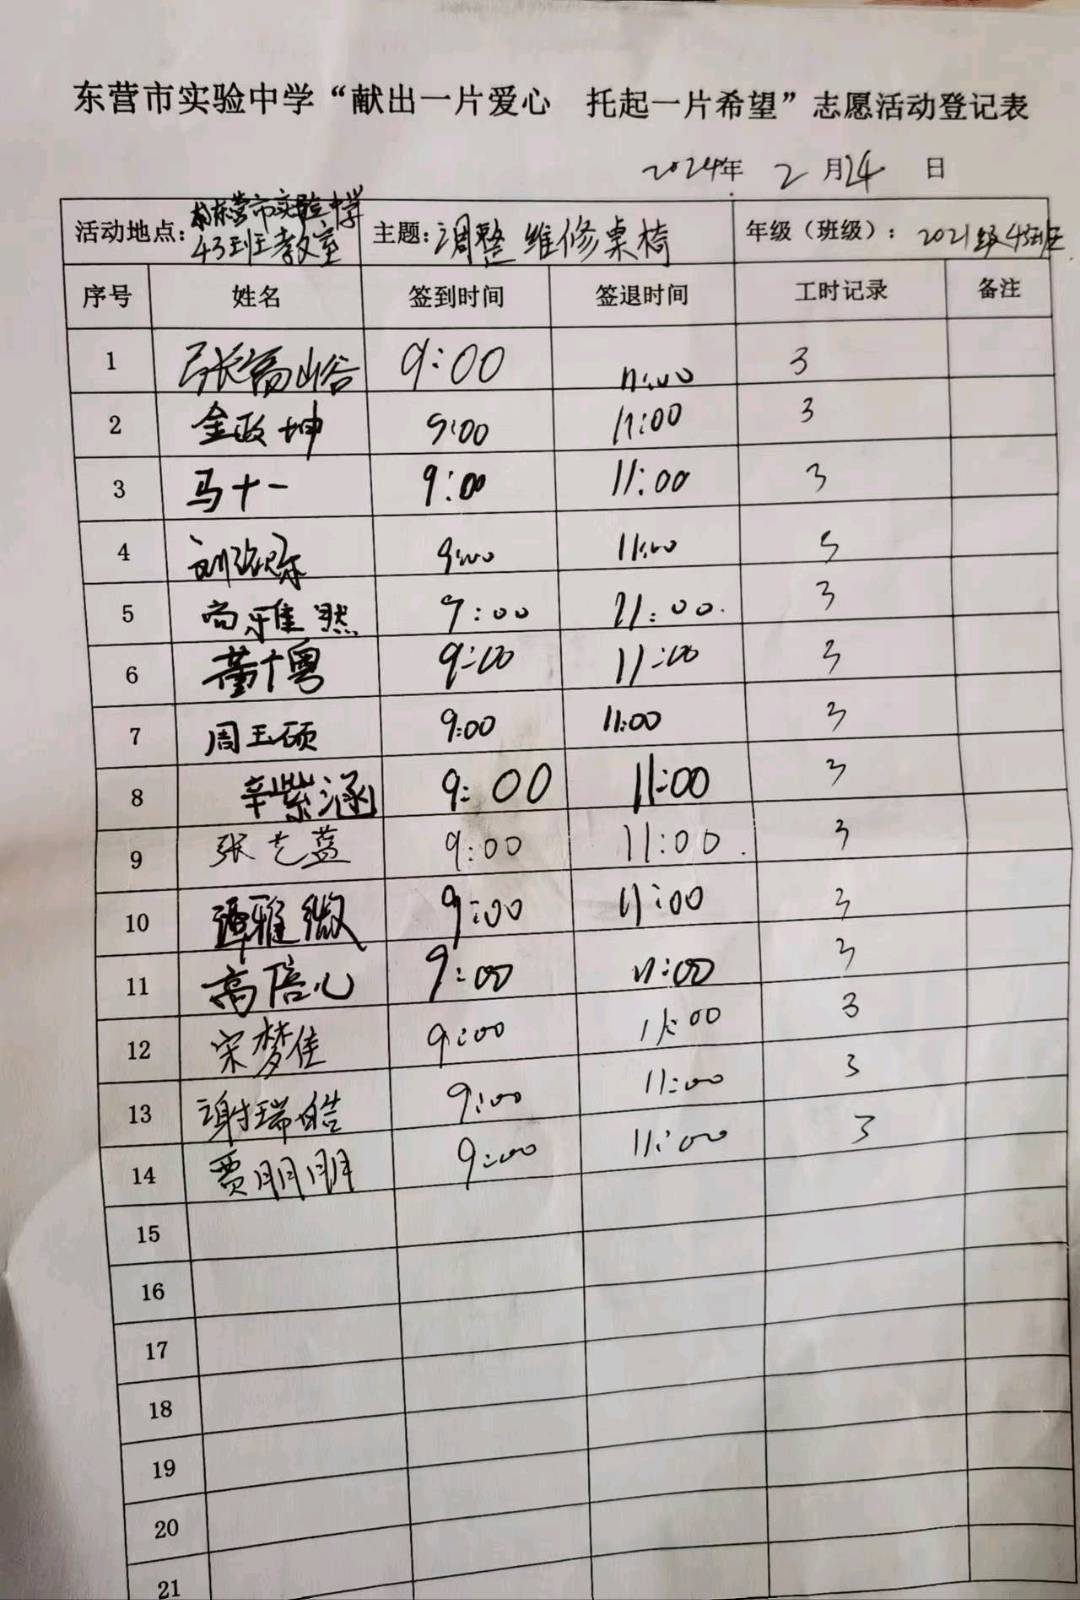 东营市实验中学“献出一片爱心 托起一片希望”志愿活动登记表
2024年 2 月24 日
活动地点: 东营市实验中学 43班教室 主题: 调整 维修桌椅 年级（班级）: 2021级43班
序号 姓名 签到时间 签退时间 工时记录 备注
1 张高山谷 9:00 11:00 3
2 金政坤 9:00 11:00 3
3 马十一 9:00 11:00 3
4 刘 9:00 11:00 3
5 尚雅然 9:00 11:00. 3
6 董十粤 9:00 11:00 3
7 周玉硕 9:00 11:00 3
8 辛紫涵 9:00 11:00 3
9 张艺蓝 9:00 11:00. 3
10 谭雅微 9:00 11:00 3
11 高倍心 9:00 11:00 3
12 宋梦佳 9:00 11:00 3
13 谢瑞皓 9:00 11:00 3
14 贾朋朋 9:00 11:00 3
15
16
17
18
19
20
21